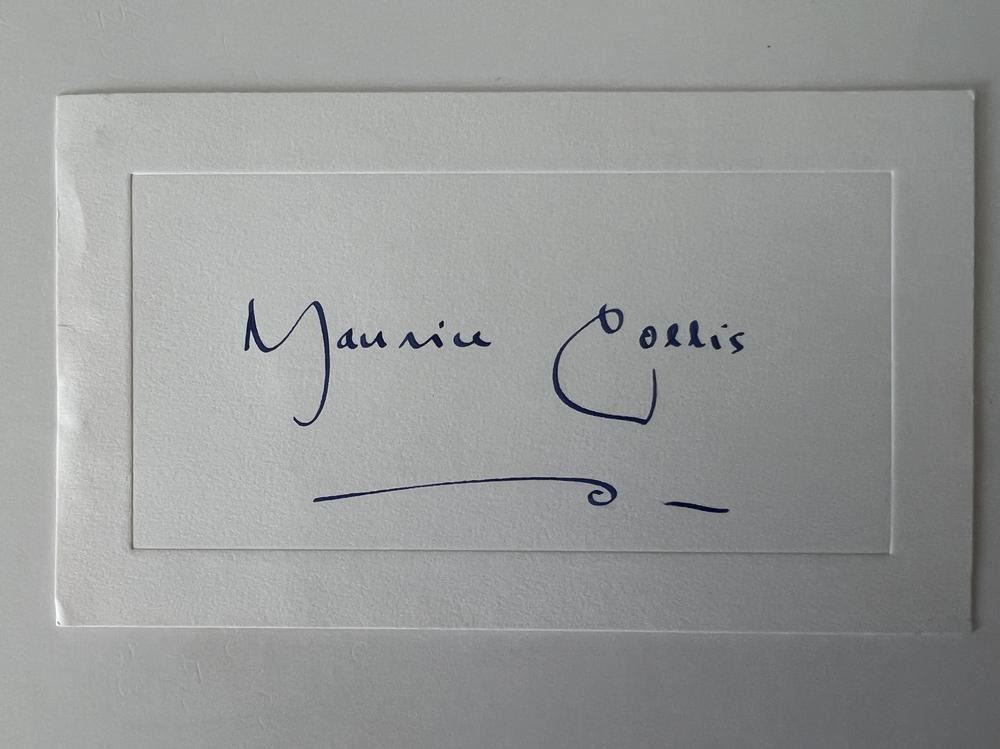 Maurice Collis